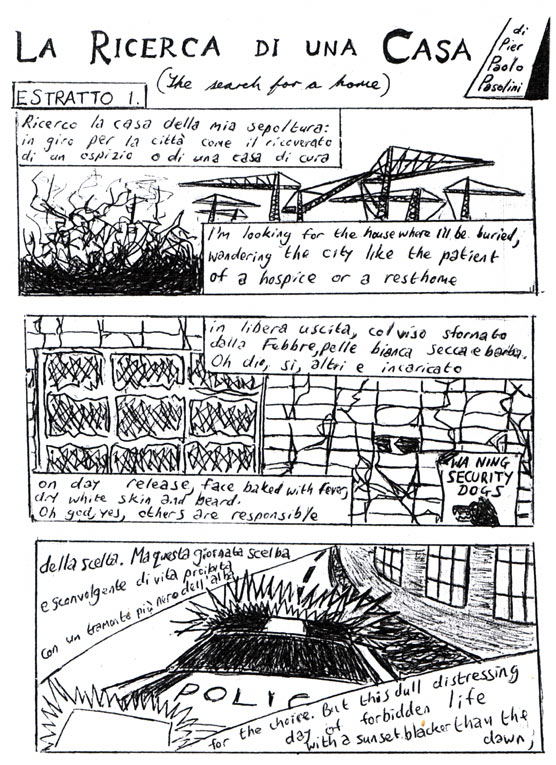 LA RICERCA DI UNA CASA
di
Pier
Paolo
Pasolini
(The search for a home)
ESTRATTO 1.
Ricerco la casa della mia sepoltura:
in giro per la città come il ricoverato
di un ospizio o di una casa di cura
I'm looking for the house where I'll be buried,
wandering the city like the patient
of a hospice or a resthome
in libera uscita, col viso sfornato
dalla Febbre, pelle bianca secca e barba.
Oh dio, sì, altri è incaricato
WA NING
SECURITY
DOGS
on day release, face baked with fever,
dry white skin and beard.
Oh god, yes, others are responsible
della scelta. Ma questa giornata scelba
e sconvolgente di vita proibita
con un tramonto più nero dell'alba
POLIC
for the choice. But this dull distressing
day of forbidden life
with a sunset blacker than the
dawn,